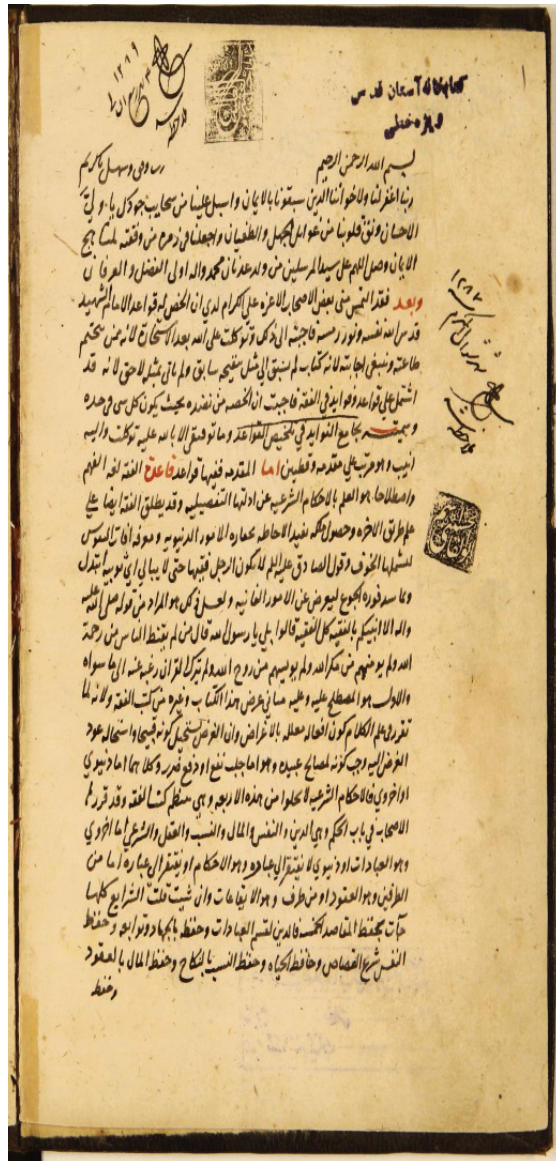 كتابخانه آستان قدس
۱۲۸۹
ملاحظه شد
بسم الله الرحمن الرحيم رب وفق وسهل يا كريم
ربنا اغفر لنا ولاخواننا الذين سبقونا بالايمان واسبل علينا من سحايب جودك يا ولي
الاحسان ونق قلوبنا من غوايل الجهل والطغيان واجعلنا في زمرة من وفقته لمناهج
الايمان وصل اللهم على سيد المرسلين من ولد عدنان محمد واله اولى الفضل والعرفان
وبعد فقد التمس مني بعض الاصحاب الاعزه علي الكرام لدي ان الخص له قواعد الامام الشهيد
قدس الله نفسه ونور رمسه فاجبته الى ذلك وتوكلت على الله بعد الاستخارة لانه ممن يتحتم
طاعته وينبغي اجابته لانه كتاب لم يسبق الى مثله سابق ولم يات بمثله لاحق لانه قد
اشتمل على قواعد وفوايد في الفقه فاجبت ان الخصه من نضده بحيث يكون كل شي في حده
وسميته بجامع الفوايد في تلخيص القواعد وما توفيقي الا بالله عليه توكلت واليه
انيب وهو مرتب على مقدمه وقطبين اما المقدمه ففيها قواعد قاعدة الفقه لغه الفهم
واصطلاحا هو العلم بالاحكام الشرعيه عن ادلتها التفصيليه وقد يطلق الفقه ايضا على
علم طريق الاخره وحصول ملكه تفيد الاحاطه بحقاره الامور الدنيويه ومعرفه افات النفوس
ليشملها الخوف وقول الصادق عليه السلم لا يكون الرجل فقيها حتى لا يبالي اي ثوبيه ابتذل
وبما سد فوره الجوع ليعرض عن الامور الفانيه ولعل ذلك هو المراد من قوله صلى الله عليه
واله الا انبيكم بالفقيه كل الفقيه قالوا بلى يا رسول الله قال من لم يقنط الناس من رحمة
الله ولم يومنهم من مكر الله ولم يويسهم من روح الله ولم يترك القران رغبه عنه الى ما سواه
والاول هو المصطلح عليه وعليه مباني غرض هذا الكتاب وغيره من كتب الفقه ولانه لما
تقرر في علم الكلام كون افعاله معلله بالاغراض وان الغرض يستحيل كونه قبيحا واستحاله عود
الغرض اليه وجب كونه لمصالح عبيده وهو اما جلب نفع او دفع ضرر وكلاهما اما دنيوي
او اخروي فالاحكام الشرعيه لا تخلوا من هذه الاربعه وهي منتظم كتب الفقه وقد قرر
الاصحاب في باب الحكم وهي الدين والنفس والمال والنسب والعقل والشرعي اما اخروي
وهو العبادات او دنيوي لا يفتقر الى عباره وهو الاحكام او يفتقر الى عباره اما من
الطرفين وهو العقود او من طرف وهو الايقاعات وان شيت قلت الشرايع كلها
جآت بحفظ المقاصد الخمسه فالدين لقسم العبادات وحفظه بالجهاد وتوابعه وحفظ
النفس شرع القصاص وحافظ الحياه وحفظ النسب بالنكاح وحفظ المال بالعقود
وحفظ
۱۲۸۷